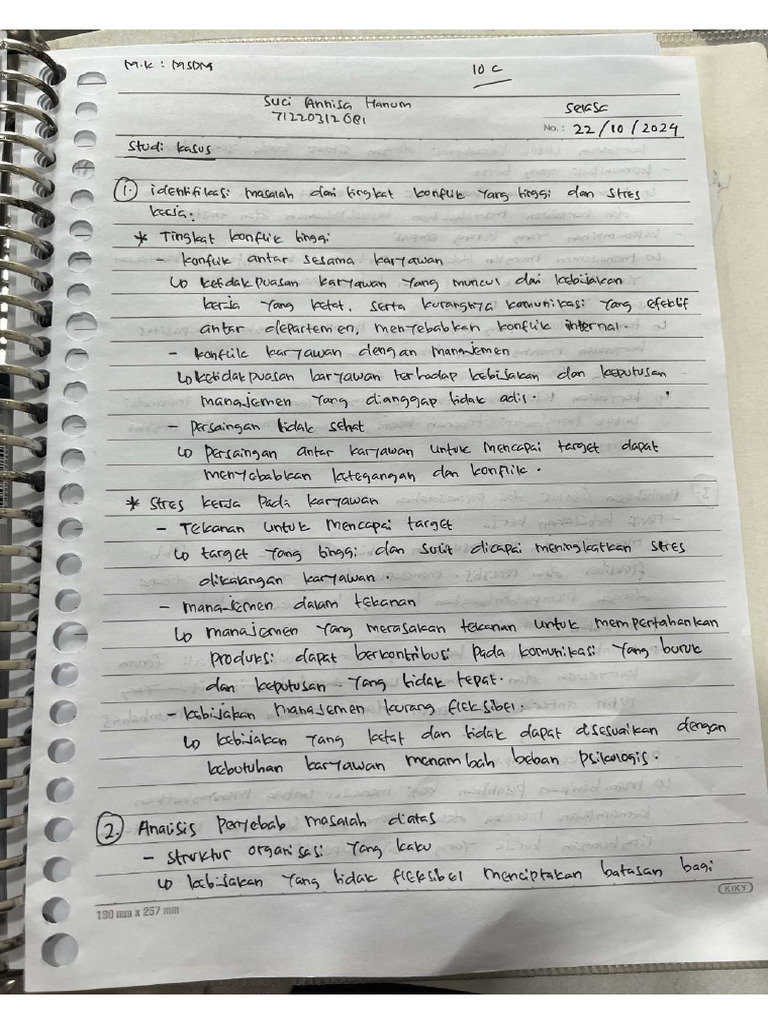 M.K : MSDM
10 C
Suci Annisa Hanum
71220312081
Selasa
No. : 22/10/2024
Studi kasus
1. identifikasi masalah dari tingkat konflik yang tinggi dan stres
kerja.
* Tingkat konflik tinggi
- konflik antar sesama karyawan
↳ ketidakpuasan karyawan yang muncul dari kebijakan
kerja yang ketat, serta kurangnya komunikasi yang efektif
antar departemen, menyebabkan konflik internal.
- konflik karyawan dengan manajemen
↳ ketidakpuasan karyawan terhadap kebijakan dan keputusan
manajemen yang dianggap tidak adil.
- persaingan tidak sehat
↳ persaingan antar karyawan untuk mencapai target dapat
menyebabkan ketegangan dan konflik.
* Stres kerja pada karyawan
- Tekanan untuk mencapai target
↳ target yang tinggi dan sulit dicapai meningkatkan stres
dikalangan karyawan.
- manajemen dalam tekanan
↳ manajemen yang merasakan tekanan untuk mempertahankan
produksi dapat berkontribusi pada komunikasi yang buruk
dan keputusan yang tidak tepat.
- kebijakan manajemen kurang fleksibel.
↳ kebijakan yang ketat dan tidak dapat disesuaikan dengan
kebutuhan karyawan menambah beban psikologis.
2. Analisis Penyebab masalah diatas
- struktur organisasi yang kaku
↳ kebijakan yang tidak fleksibel menciptakan batasan bagi
KIKY
180 mm x 257 mm